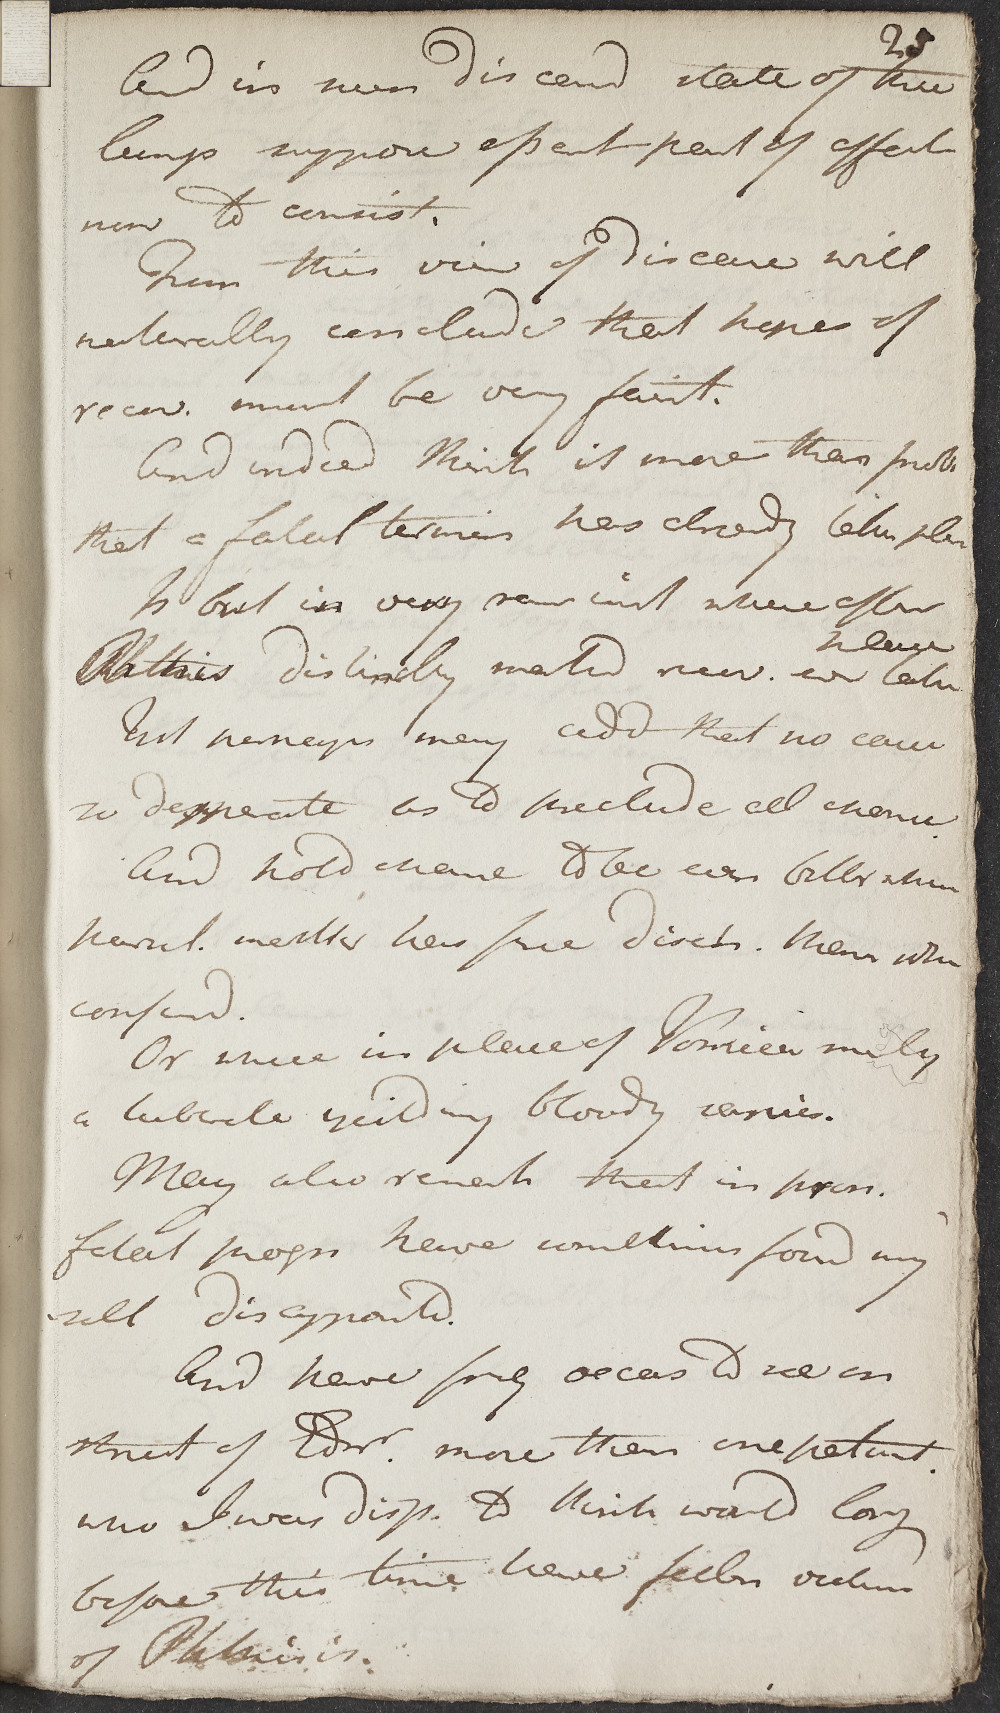 25
And in such diseased state of the
lungs suppose essent part of affect
now to consist.
From this view of disease will
naturally conclude that hopes of
recov. must be very faint.
And indeed think it more than prob
that a fatal termin has already taken place
Is but in very rare inst where after
Phthisis distinctly marked recov. ever taken
place
But perhaps may add that no case
so desperate as to preclude all chance.
And hold chance to be even better when
purul. matter has free disch. than when
confined.
Or where in place of Vomica merely
a tubercle yeilding bloody sanies.
May also remark that in pron.
fatal progn have sometimes found my
self disappointed.
And have freq occas to see on
street of Edinr. more than one patient.
who I was disp. to think would long
before this time have fallen victims
of Phthisis.